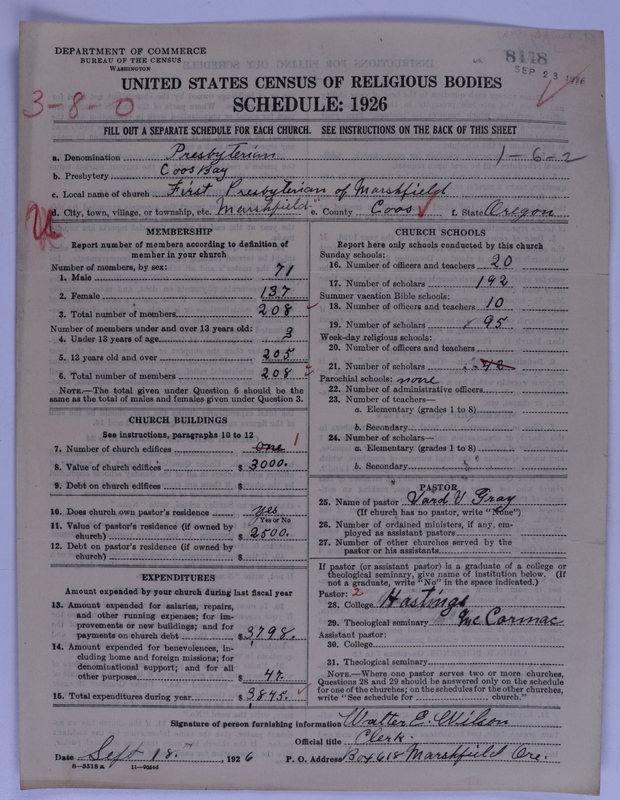 DEPARTMENT OF COMMERCE
BUREAU OF THE CENSUS
WASHINGTON
8148
SEP 23 1926
UNITED STATES CENSUS OF RELIGIOUS BODIES
3-8-0
SCHEDULE: 1926
FILL OUT A SEPARATE SCHEDULE FOR EACH CHURCH. SEE INSTRUCTIONS ON THE BACK OF THIS SHEET
a. Denomination Presbyterian 1-6-2
b. Presbytery Coos Bay
c. Local name of church First Presbyterian of Marshfield
d. City, town, village, or township, etc. Marshfield e. County Coos f. State Oregon
MEMBERSHIP
Report number of members according to definition of
member in your church
Number of members, by sex:
1. Male 71
2. Female 137
3. Total number of members 208
Number of members under and over 13 years old:
4. Under 13 years of age 3
5. 13 years old and over 205
6. Total number of members 208
NOTE.—The total given under Question 6 should be the
same as the total of males and females given under Question 3.
CHURCH BUILDINGS
See instructions, paragraphs 10 to 12
7. Number of church edifices One 1
8. Value of church edifices $ 3000.
9. Debt on church edifices $
10. Does church own pastor's residence yes
Yes or No
11. Value of pastor's residence (if owned by
church) $ 2500.
12. Debt on pastor's residence (if owned by
church) $
EXPENDITURES
Amount expended by your church during last fiscal year
13. Amount expended for salaries, repairs,
and other running expenses; for im-
provements or new buildings; and for
payments on church debt $ 3,798.
14. Amount expended for benevolences, in-
cluding home and foreign missions; for
denominational support; and for all
other purposes $ 47.
15. Total expenditures during year $ 3,845.
CHURCH SCHOOLS
Report here only schools conducted by this church
Sunday schools:
16. Number of officers and teachers 20
17. Number of scholars 192
Summer vacation Bible schools:
18. Number of officers and teachers 10
19. Number of scholars 95
Week-day religious schools:
20. Number of officers and teachers
21. Number of scholars
Parochial schools: none
22. Number of administrative officers
23. Number of teachers—
a. Elementary (grades 1 to 8)
b. Secondary
24. Number of scholars—
a. Elementary (grades 1 to 8)
b. Secondary
PASTOR
25. Name of pastor Vard V. Gray
(If church has no pastor, write "None")
26. Number of ordained ministers, if any, em-
ployed as assistant pastors
27. Number of other churches served by the
pastor or his assistants
If pastor (or assistant pastor) is a graduate of a college or
theological seminary, give name of institution below. (If
not a graduate, write "No" in the space indicated.)
Pastor: 2
28. College Hastings
29. Theological seminary McCormac
Assistant pastor:
30. College
31. Theological seminary
NOTE.—Where one pastor serves two or more churches,
Questions 28 and 29 should be answered only on the schedule
for one of the churches; on the schedules for the other churches,
write "See schedule for church."
Signature of person furnishing information Walter E. Wilson
Official title Clerk.
Date Sept 18. , 1926 P. O. Address Box 618 Marshfield Ore.
8—5318 a 11—9034d